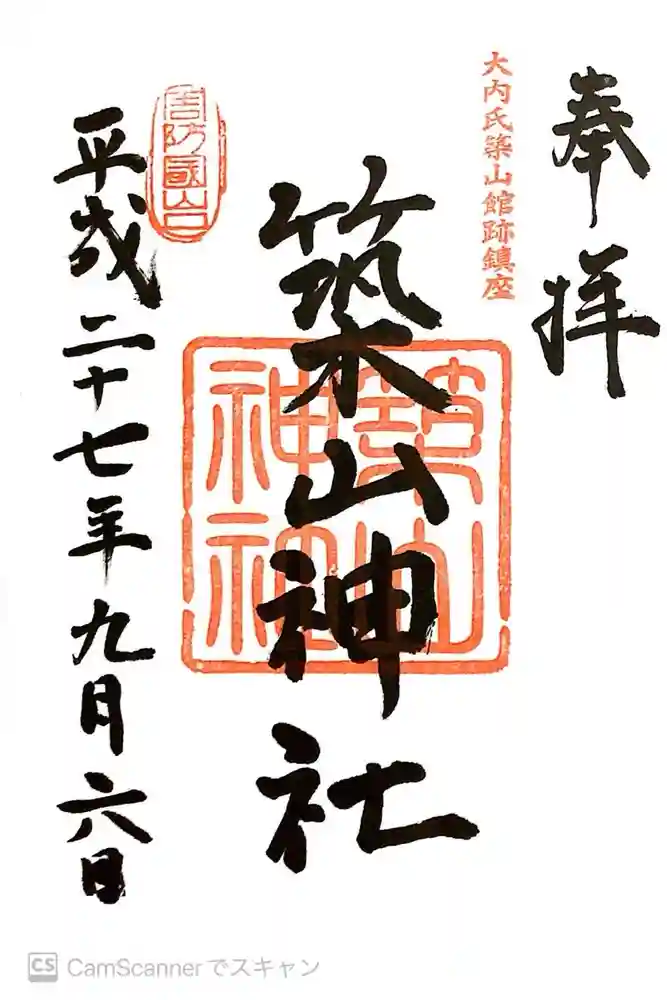 奉拝
大内氏築山館跡鎮座
築山神社
周防國山口
平成二十七年九月六日
CS CamScannerでスキャン